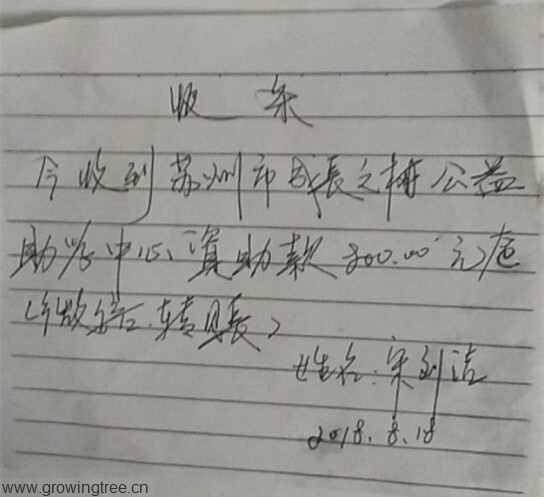 收条
今收到苏州市成长之树公益
助学中心资助款800.00元。
转账)
姓名:宋刘洁
2018.8.18
www.growingtree.cn